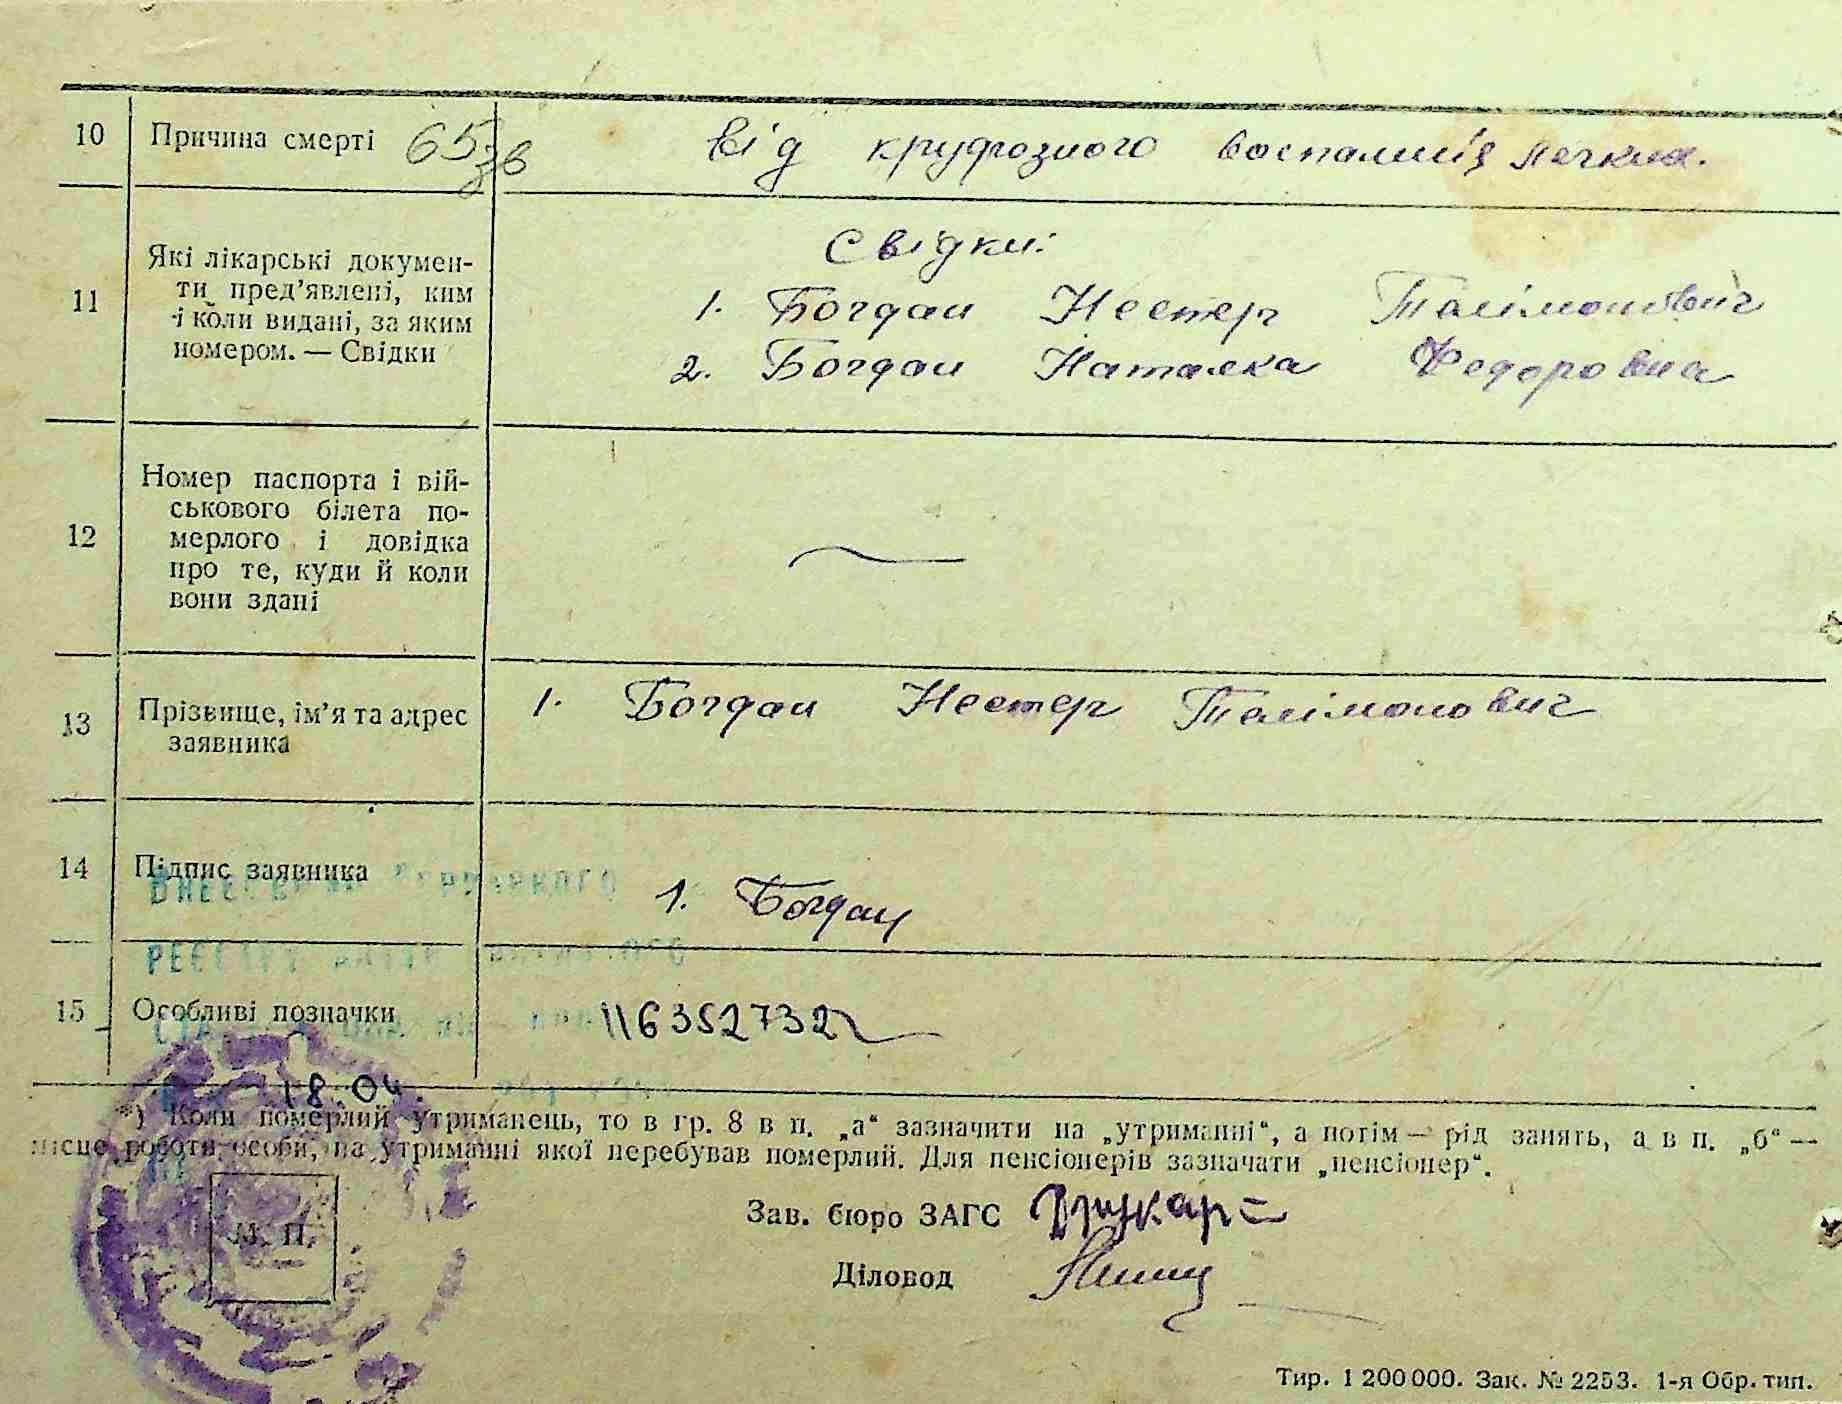 10 Причина смерті 65 зв Від крупозного воспаминія легких.
11 Які лікарські докумен-
ти пред’явлені, ким
і коли видані, за яким
номером. — Свідки
Свідки:
1. Богдан Нестер
2. Богдан Наталка Федоровна
12 Номер паспорта і вій-
ськового білета по-
мерлого і довідка
про те, куди й коли
вони здані
13 Прізвище, ім’я та адрес
заявника
1. Богдан Нестер
14 Підпис заявника
1. Богдан
РЕЄСТРУ
15 Особливі позначки
1163527322
18.04.
*) Коли померлий утриманець, то в гр. 8 в п. „а“ зазначити на „утриманні“, а потім — рід занять, а в п. „б“ —
місце роботи особи, на утриманні якої перебував померлий. Для пенсіонерів зазначати „пенсіонер“.
М. П.
Зав. бюро ЗАГС
Діловод
Тир. 1 200 000. Зак. № 2253. 1-я Обр. тип.